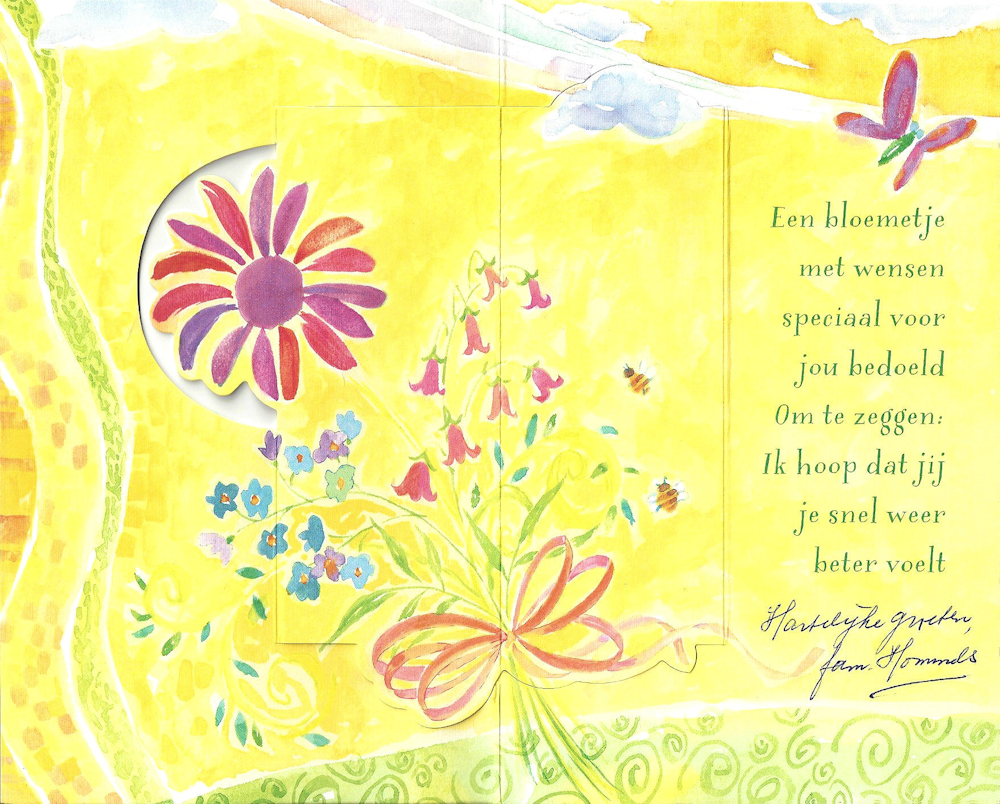 Een bloemetje
met wensen
speciaal voor
jou bedoeld
Om te zeggen:
Ik hoop dat jij
je snel weer
beter voelt
Hartelijke groeten,
fam.